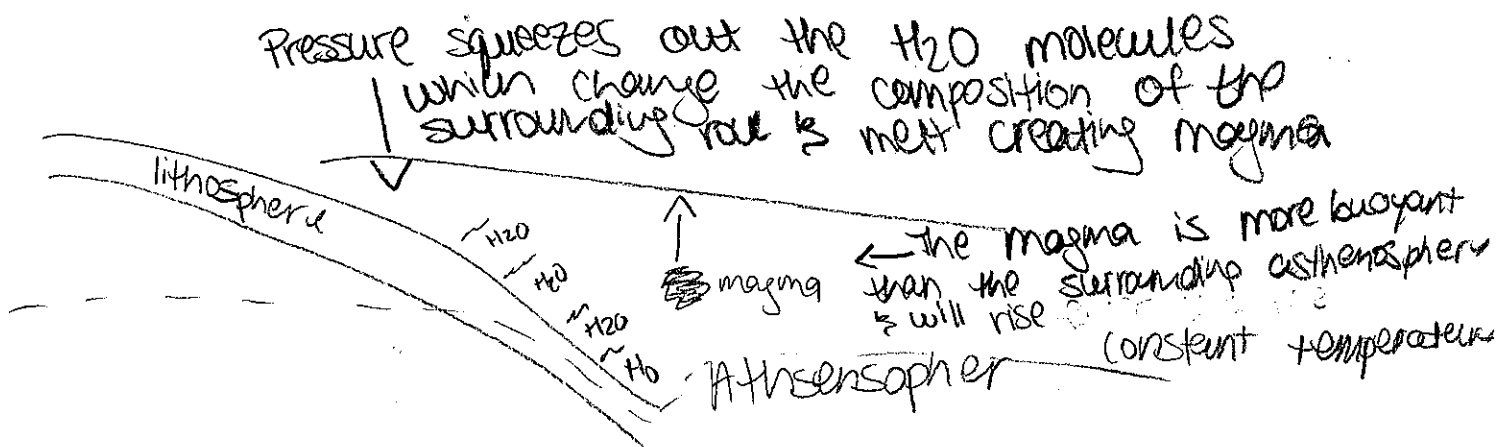 Pressure squeezes out the H2O molecules
which change the composition of the
surrounding rock & melt creating magma
lithosphere
~H2O
~H2O
~H2O
~H0
magma
← the magma is more buoyant
than the surrounding asthenosphere
& will rise
constant temperature
Athsensopher